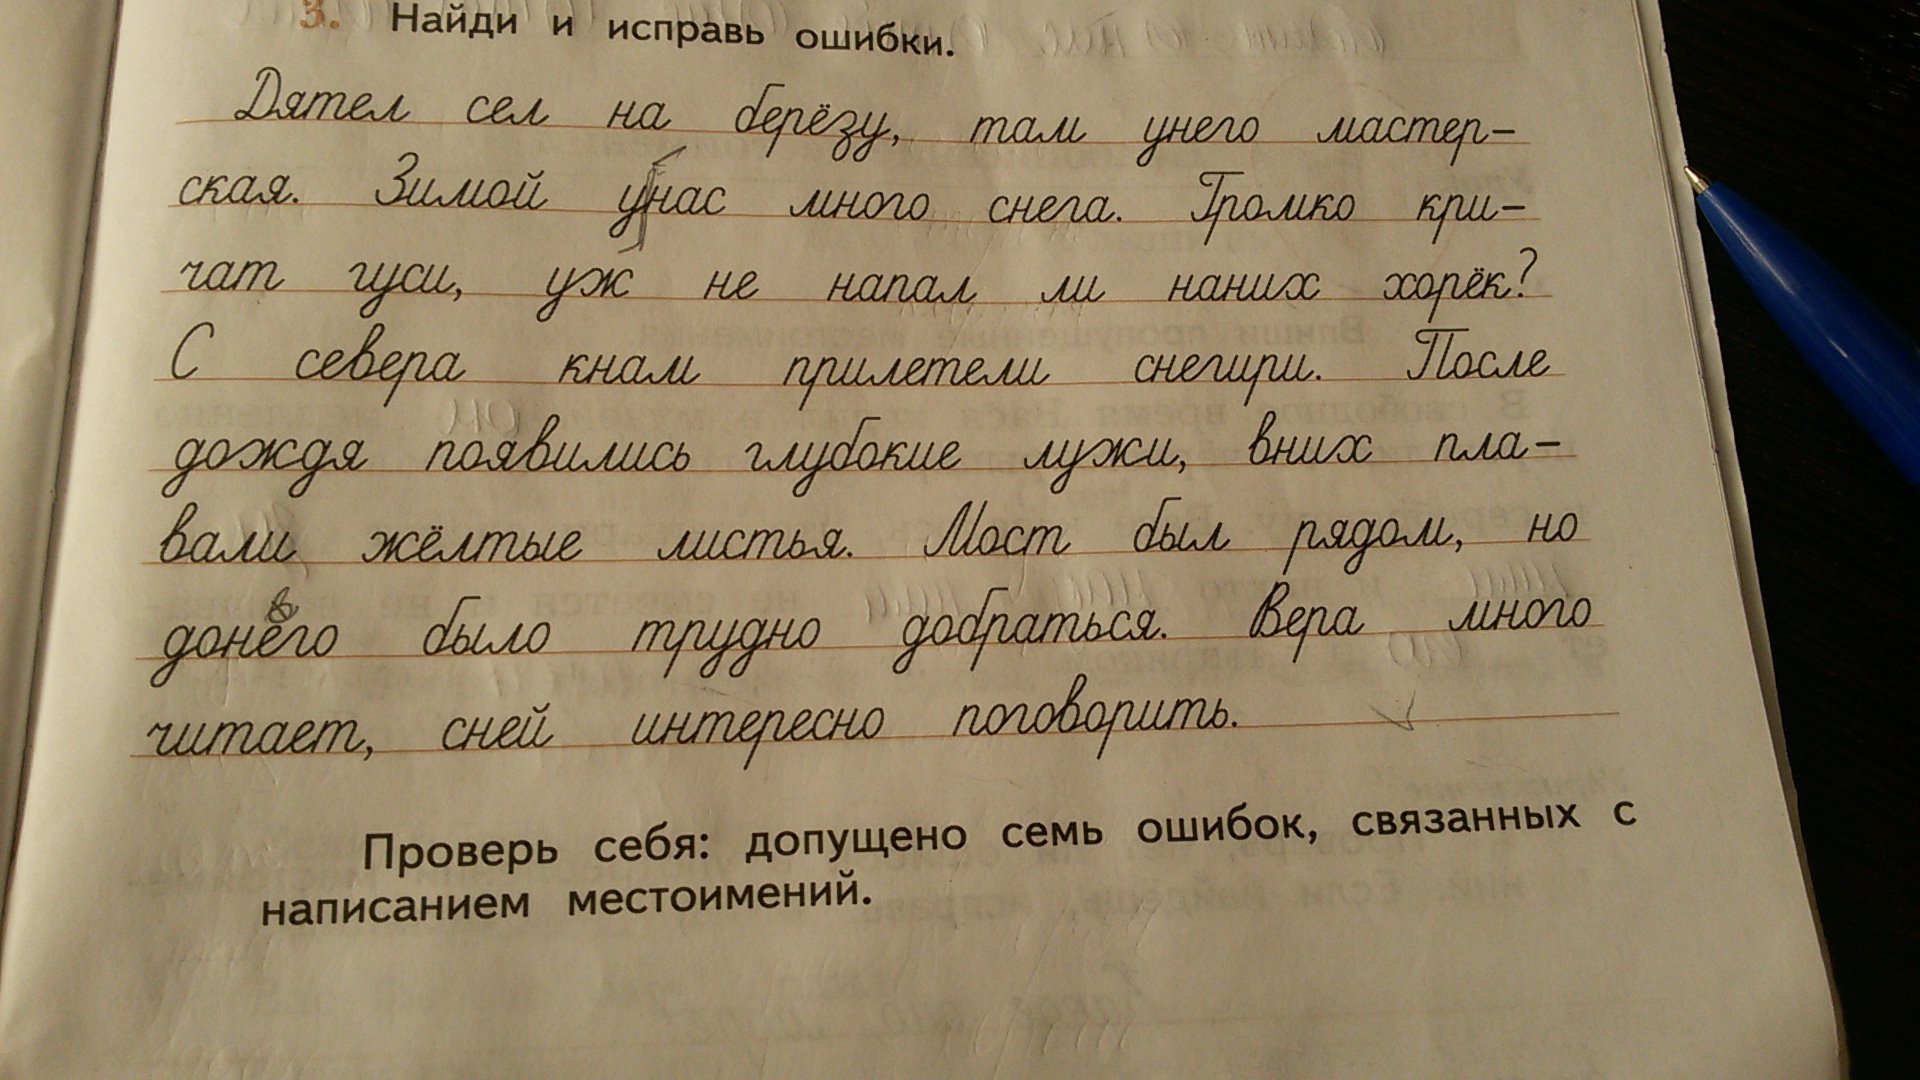 3. Найди и исправь ошибки.
Дятел сел на берёзу, там унего мастер-
ская. Зимой унас много снега. Громко кри-
чат гуси, уж не напал ли наних хорёк?
С севера кнам прилетели снегири. После
дождя появились глубокие лужи, вних пла-
вали жёлтые листья. Мост был рядом, но
в
донего было трудно добраться. Вера много
читает, сней интересно поговорить.
Проверь себя: допущено семь ошибок, связанных с
написанием местоимений.